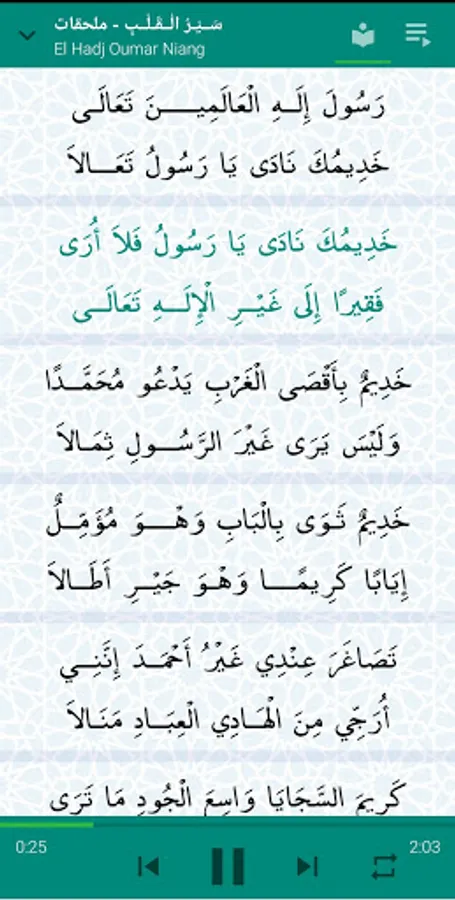 سَـيْـرُ الْـقَـلْـبِ - ملحقات
El Hadj Oumar Niang
رَسُولَ إِلَـهِ الْعَالَمِيـــنَ تَعَالَـى
خَدِيمُكَ نَادَى يَا رَسُولُ تَعَـــالاَ
خَدِيمُكَ نَادَى يَا رَسُولُ فَلاَ أُرَى
فَقِيرًا إِلَى غَيْــرِ الْإِلَــهِ تَعَالَــى
خَدِيمٌ بِأَقْصَى الْغَرْبِ يَدْعُو مُحَمَّــدًا
وَلَيْسَ يَرَى غَيْرَ الرَّسُــولِ ثِمَـالاَ
خَدِيمٌ ثَـوَى بِالْبَابِ وَهْــوَ مُؤَمِّــلٌ
إِيَابًا كَرِيمًــا وَهْـوَ جَيْـرِ أَطَـالاَ
تَصَاغَرَ عِنْدِي غَيْرُ أَحْمَـدَ إِنَّنِــي
أُرَجِّي مِنَ الْهَـادِي الْعِبَـادِ مَنَـالاَ
كَرِيمَ السَّجَايَا وَاسِعَ الْجُودِ مَا تَرَى
0:25
2:03